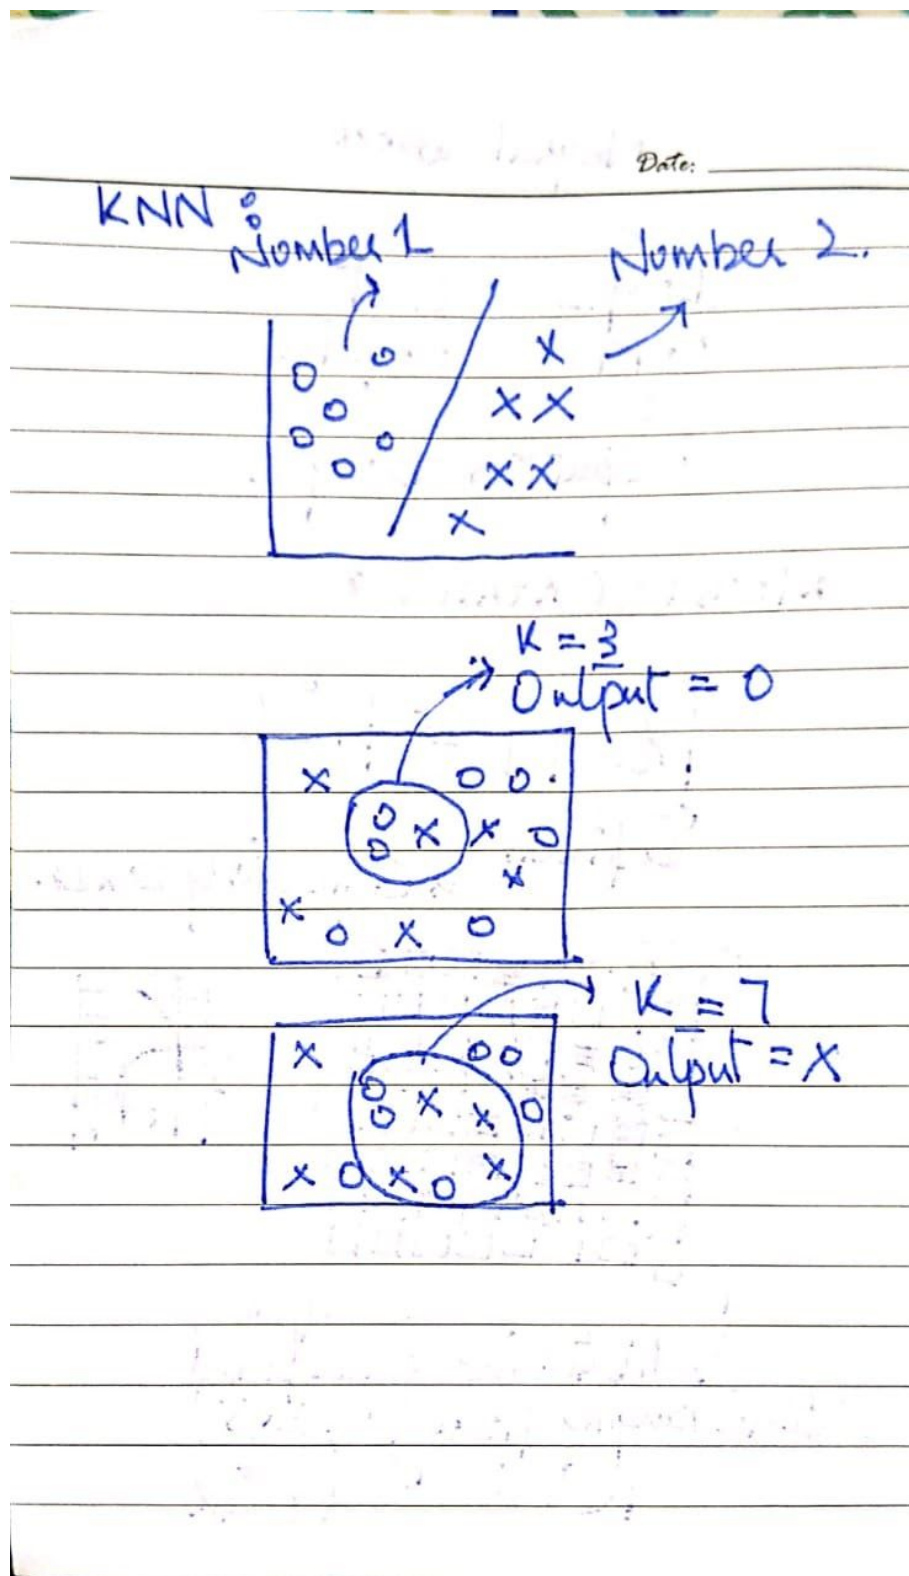 Date:
KNN :
Number 1
Number 2.
K = 3
Output = O
K = 7
Output = X